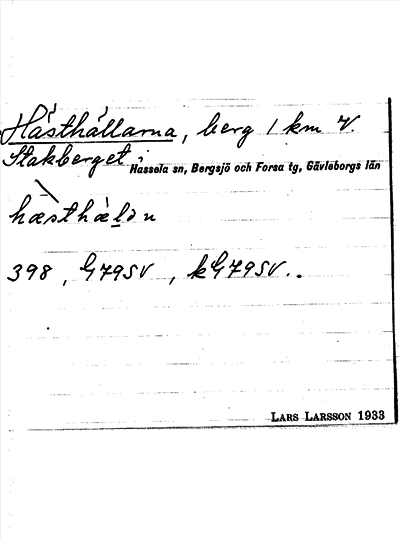 Hästhällarna, berg 1 km V.
Stakberget i
Hassela sn, Bergsjö och Forsa tg, Gävleborgs län
hæ̀sthæ̀lən
398, G79SV, kG79SV..
LARS LARSSON 1933